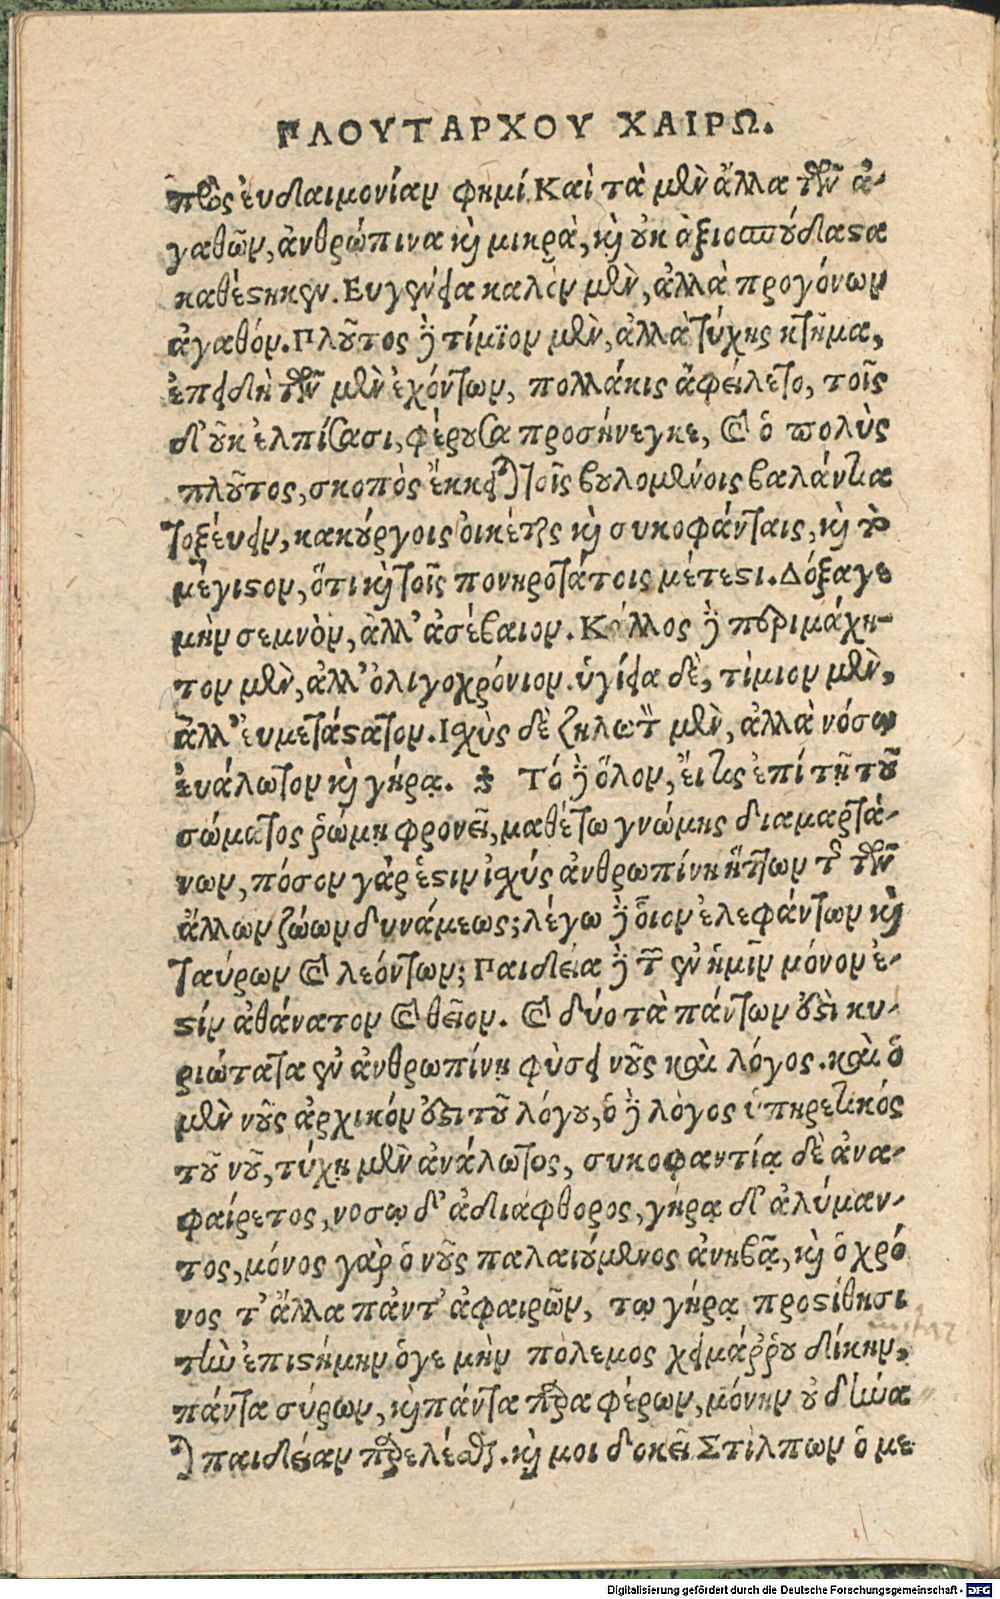 ΠΛΟΥΤΑΡΧΟΥ ΧΑΙΡΩ.
πρὸς ἐυδαιμονίαν φημί. Καὶ τὰ μὲν ἄλλα τῶν ἀ-
γαθῶν, ἀνθρώπινα καὶ μικρὰ, καὶ οὐκ ἀξιοσπούδαστα
καθέστηκεν. Ευγένεια καλὸν μὲν, ἀλλὰ προγόνων
ἀγαθόν. Πλοῦτος δὲ τίμιον μὲν, ἀλλὰ τύχης κτῆμα,
ἐπειδὴ τῶν μὲν ἐχόντων, πολλάκις ἀφείλετο, τοῖς
δ' οὐκ ἐλπίσασι, φέρουσα προσήνεγκε, καὶ ὁ πολὺς
πλοῦτος, σκοπὸς ἔκκειται τοῖς βουλομένοις βαλάντια
τοξεύειν, κακούργοις οἰκέταις καὶ συκοφάνταις, καὶ τὸ
μέγιστον, ὅτι καὶ τοῖς πονηροτάτοις μέτεστι. Δόξαγε
μὴν σεμνὸν, ἀλλ' ἀσέβαιον. Κάλλος δὲ περιμάχη-
τον μὲν, ἀλλ' ὀλιγοχρόνιον. ὑγίεια δὲ, τίμιον μὲν,
ἀλλ' ἐυμετάστατον. Ισχὺς δὲ ζηλωτὸν μὲν, ἀλλὰ νόσῳ
ἐυάλωτον καὶ γήρᾳ. Τό δὲ ὅλον, ἔι τις ἐπί τῇ τοῦ
σώματος ῥώμῃ φρονεῖ, μαθέτω γνώμης διαμαρτά-
νων, πόσον γάρ ἐστιν ἰσχύς ἀνθρωπίνη ἥττων τῆς τῶν
ἄλλων ζώων δυνάμεως; λέγω δὲ ὅιον ἐλεφάντων καὶ
ταύρων καὶ λεόντων; Παιδεία δὲ τῶν ἐν ἡμῖν μόνον ἐ-
στίν ἀθάνατον καὶ θεῖον. καὶ δύο τὰ πάντων ἐστὶ κυ-
ριώτατα ἐν ἀνθρωπίνῃ φύσει νοῦς καὶ λόγος. καὶ ὁ
μὲν νοῦς ἀρχικόν ἐστι τοῦ λόγου, ὁ δὲ λόγος ὑπηρετικός
τοῦ νοῦ, τύχῃ μὲν ἀνάλωτος, συκοφαντίᾳ δὲ ἀνα-
φαίρετος, νοσῳ δ' ἀδιάφθορος, γήρᾳ δ' ἀλύμαν-
τος, μόνος γὰρ ὁ νοῦς παλαιούμενος ἀνηβᾷ, καὶ ὁ χρό
νος τ' ἄλλα πάντ' ἀφαιρῶν, τῳ γήρᾳ προστίθησι
τὴν ἐπιστήμην ὅγε μὴν πόλεμος χειμάῤῥου δίκην,
πάντα σύρων, καὶ πάντα παραφέρων, μόνην οὐ δύνα
ται παιδείαν παρελέσθαι. καὶ μοι δοκεῖ Στίλπων ὁ με
Digitalisierung gefördert durch die Deutsche Forschungsgemeinschaft - DFG